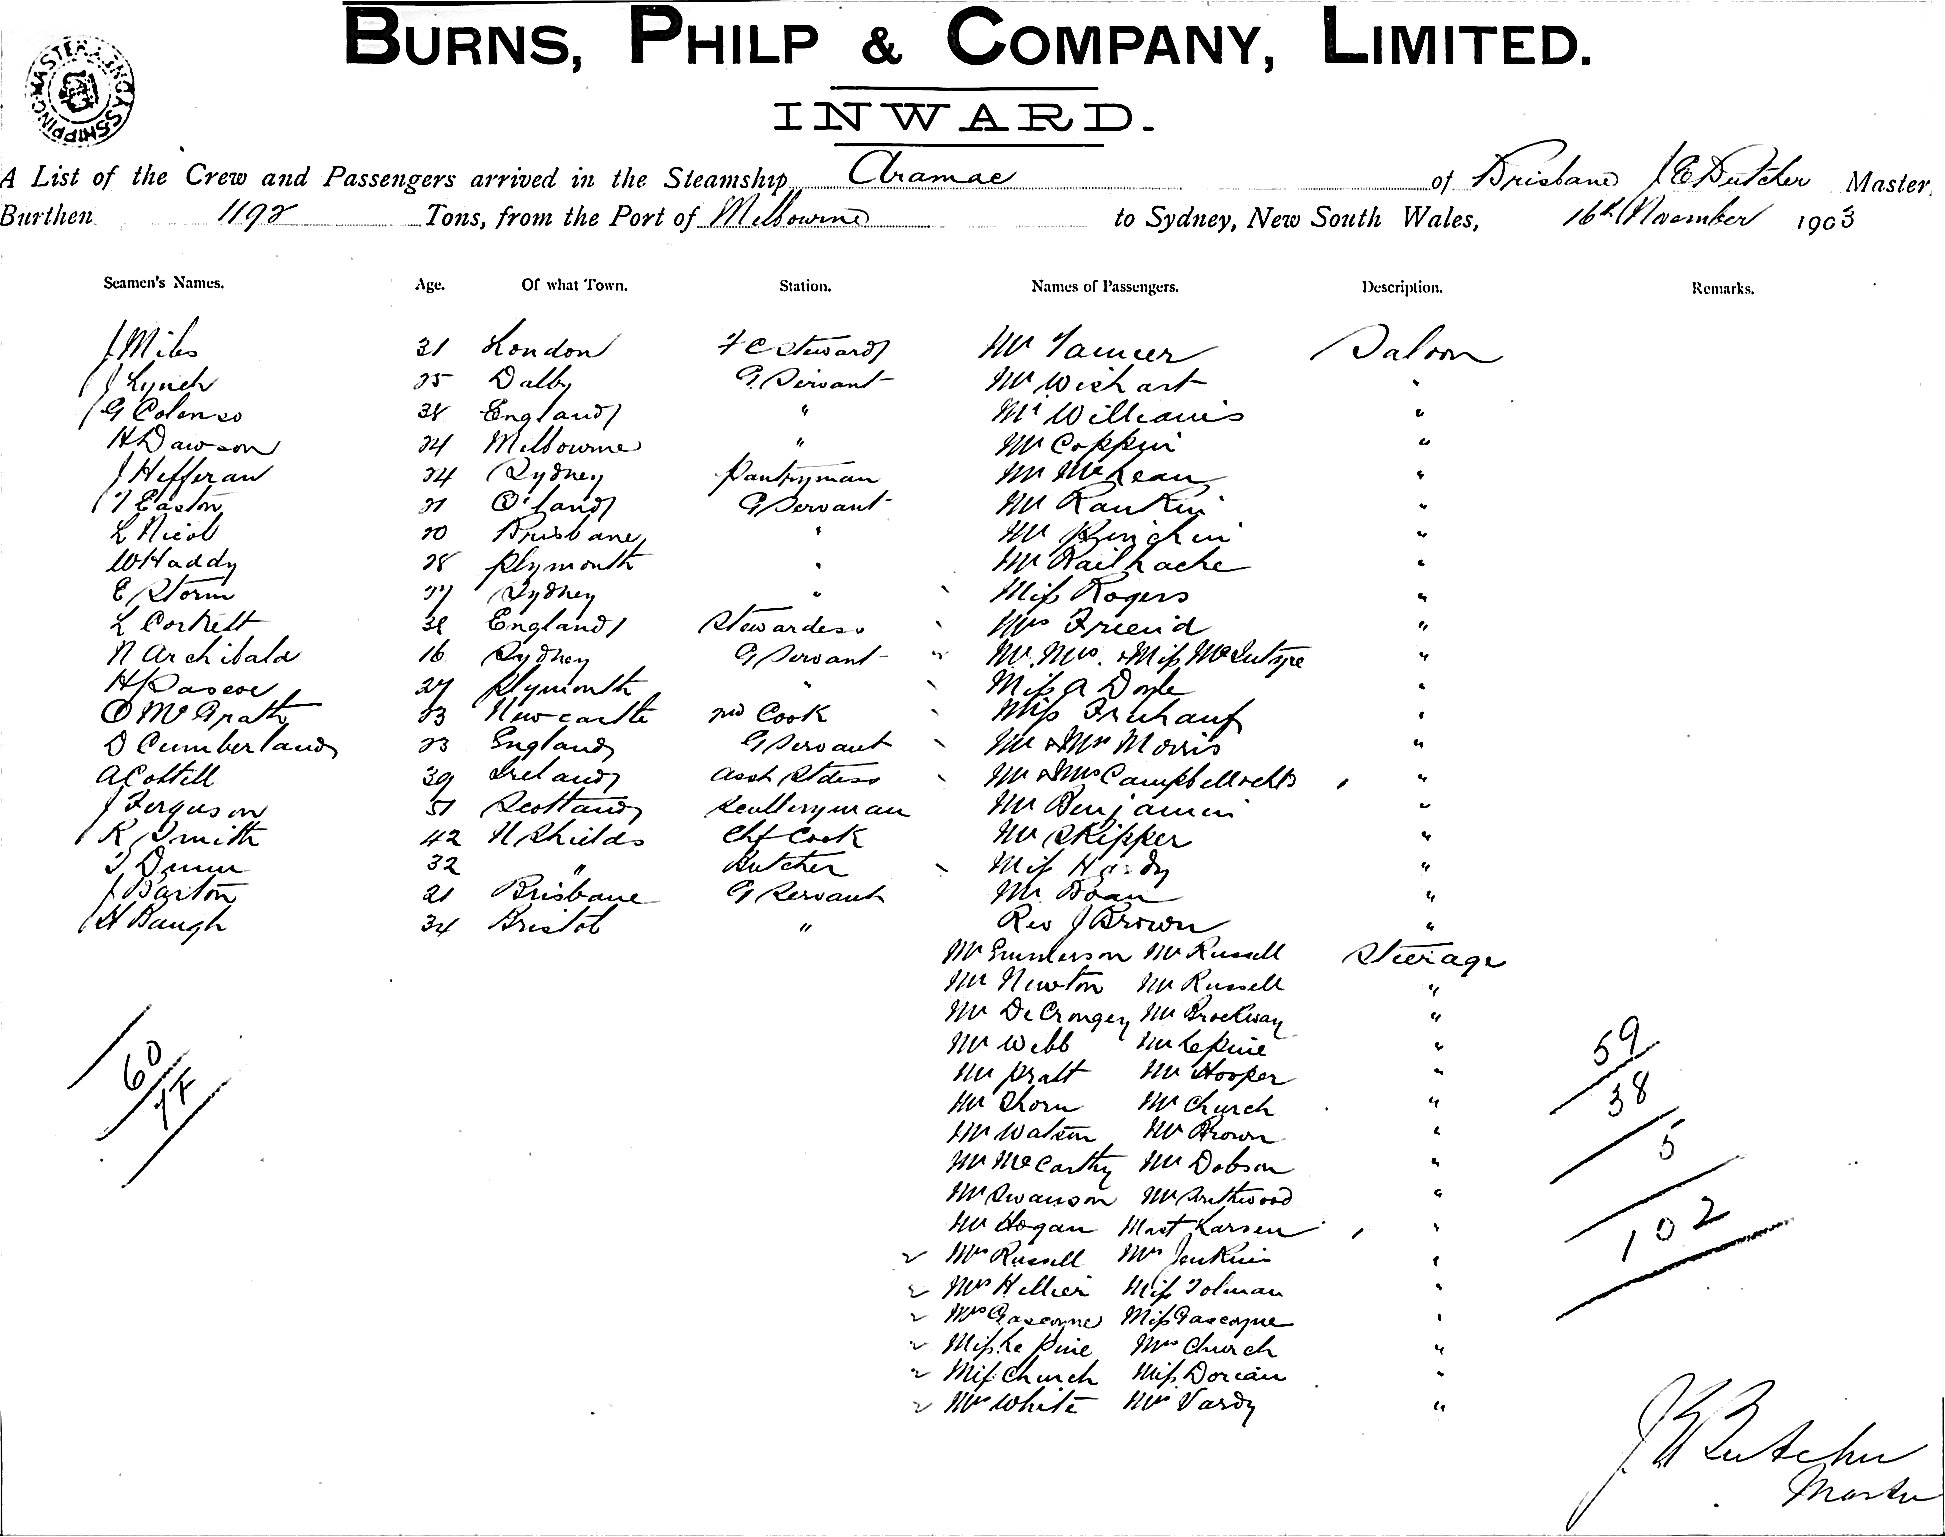 BURNS, PHILP & COMPANY, LIMITED.
INWARD.
SHIPPING MASTER
A List of the Crew and Passengers arrived in the Steamship, Aramac of Brisbane J E Butcher Master,
Burthen 1192 Tons, from the Port of Melbourne to Sydney, New South Wales, 16th November 1903
Seamen's Names. Age. Of what Town. Station. Names of Passengers. Description. Remarks.
J Miles 31 London F C Steward Mr Saloon
J Lynch 25 Dalby G Servant Mr Wishart "
G Colenso 38 England " Mr Williams "
H Dawson 24 Melbourne " Mr Coppin "
J Hefferan 24 Sydney Pantryman Mr McLean "
T Easton 21 Q'land G Servant Mr Rankin "
L Nicol 20 Brisbane " Mr Kinchin "
W Haddy 28 Plymouth " Mr Railhache "
E Storm 27 Sydney " Miss Rogers "
L Corkett 38 England Stewardess Mrs Friend "
N Archibald 16 Sydney G Servant Mr. Mrs. & Miss McIntyre "
H Pascoe 27 Plymouth " Miss A Doyle "
O McGrath 23 Newcastle 2nd Cook Miss Fruhauf "
D Cumberland 23 England G Servant Mr & Mrs Morris "
A Cottell 39 Ireland Asst Stdess Mr & Mrs Campbell "
J Ferguson 51 Scotland Sculleryman Mr Benjamin "
R Smith 42 N Shields Chf Cook Mr Skipper "
T Dunn 32 " Butcher Miss Hardy "
J Barton 21 Brisbane G Servant Mr. Doan "
H Baugh 34 Bristol " Rev J Brown "
Mr Gunnerson Mr Russell Steerage
Mr Newton Mr Russell "
Mr Mr Brockway "
Mr Webb Mr Lepine "
Mr Pratt Mr Hooper "
Mr Shorn Mr Church "
Mr Watson Mr Brown "
Mr McCarthy Mr Dobson "
Mr Swanson Mr Southwood "
Mr Hogan Mast Larsen "
Mrs Russell Mrs Jenkins "
Mrs Hellier Miss Tolman "
Mrs Gascoyne Miss Gascoyne "
Miss Le Pine Mrs Church "
Miss Church Miss Dorcan "
Mrs White Mrs Vardy "
60
59
38
5
102
J E Butcher
Master